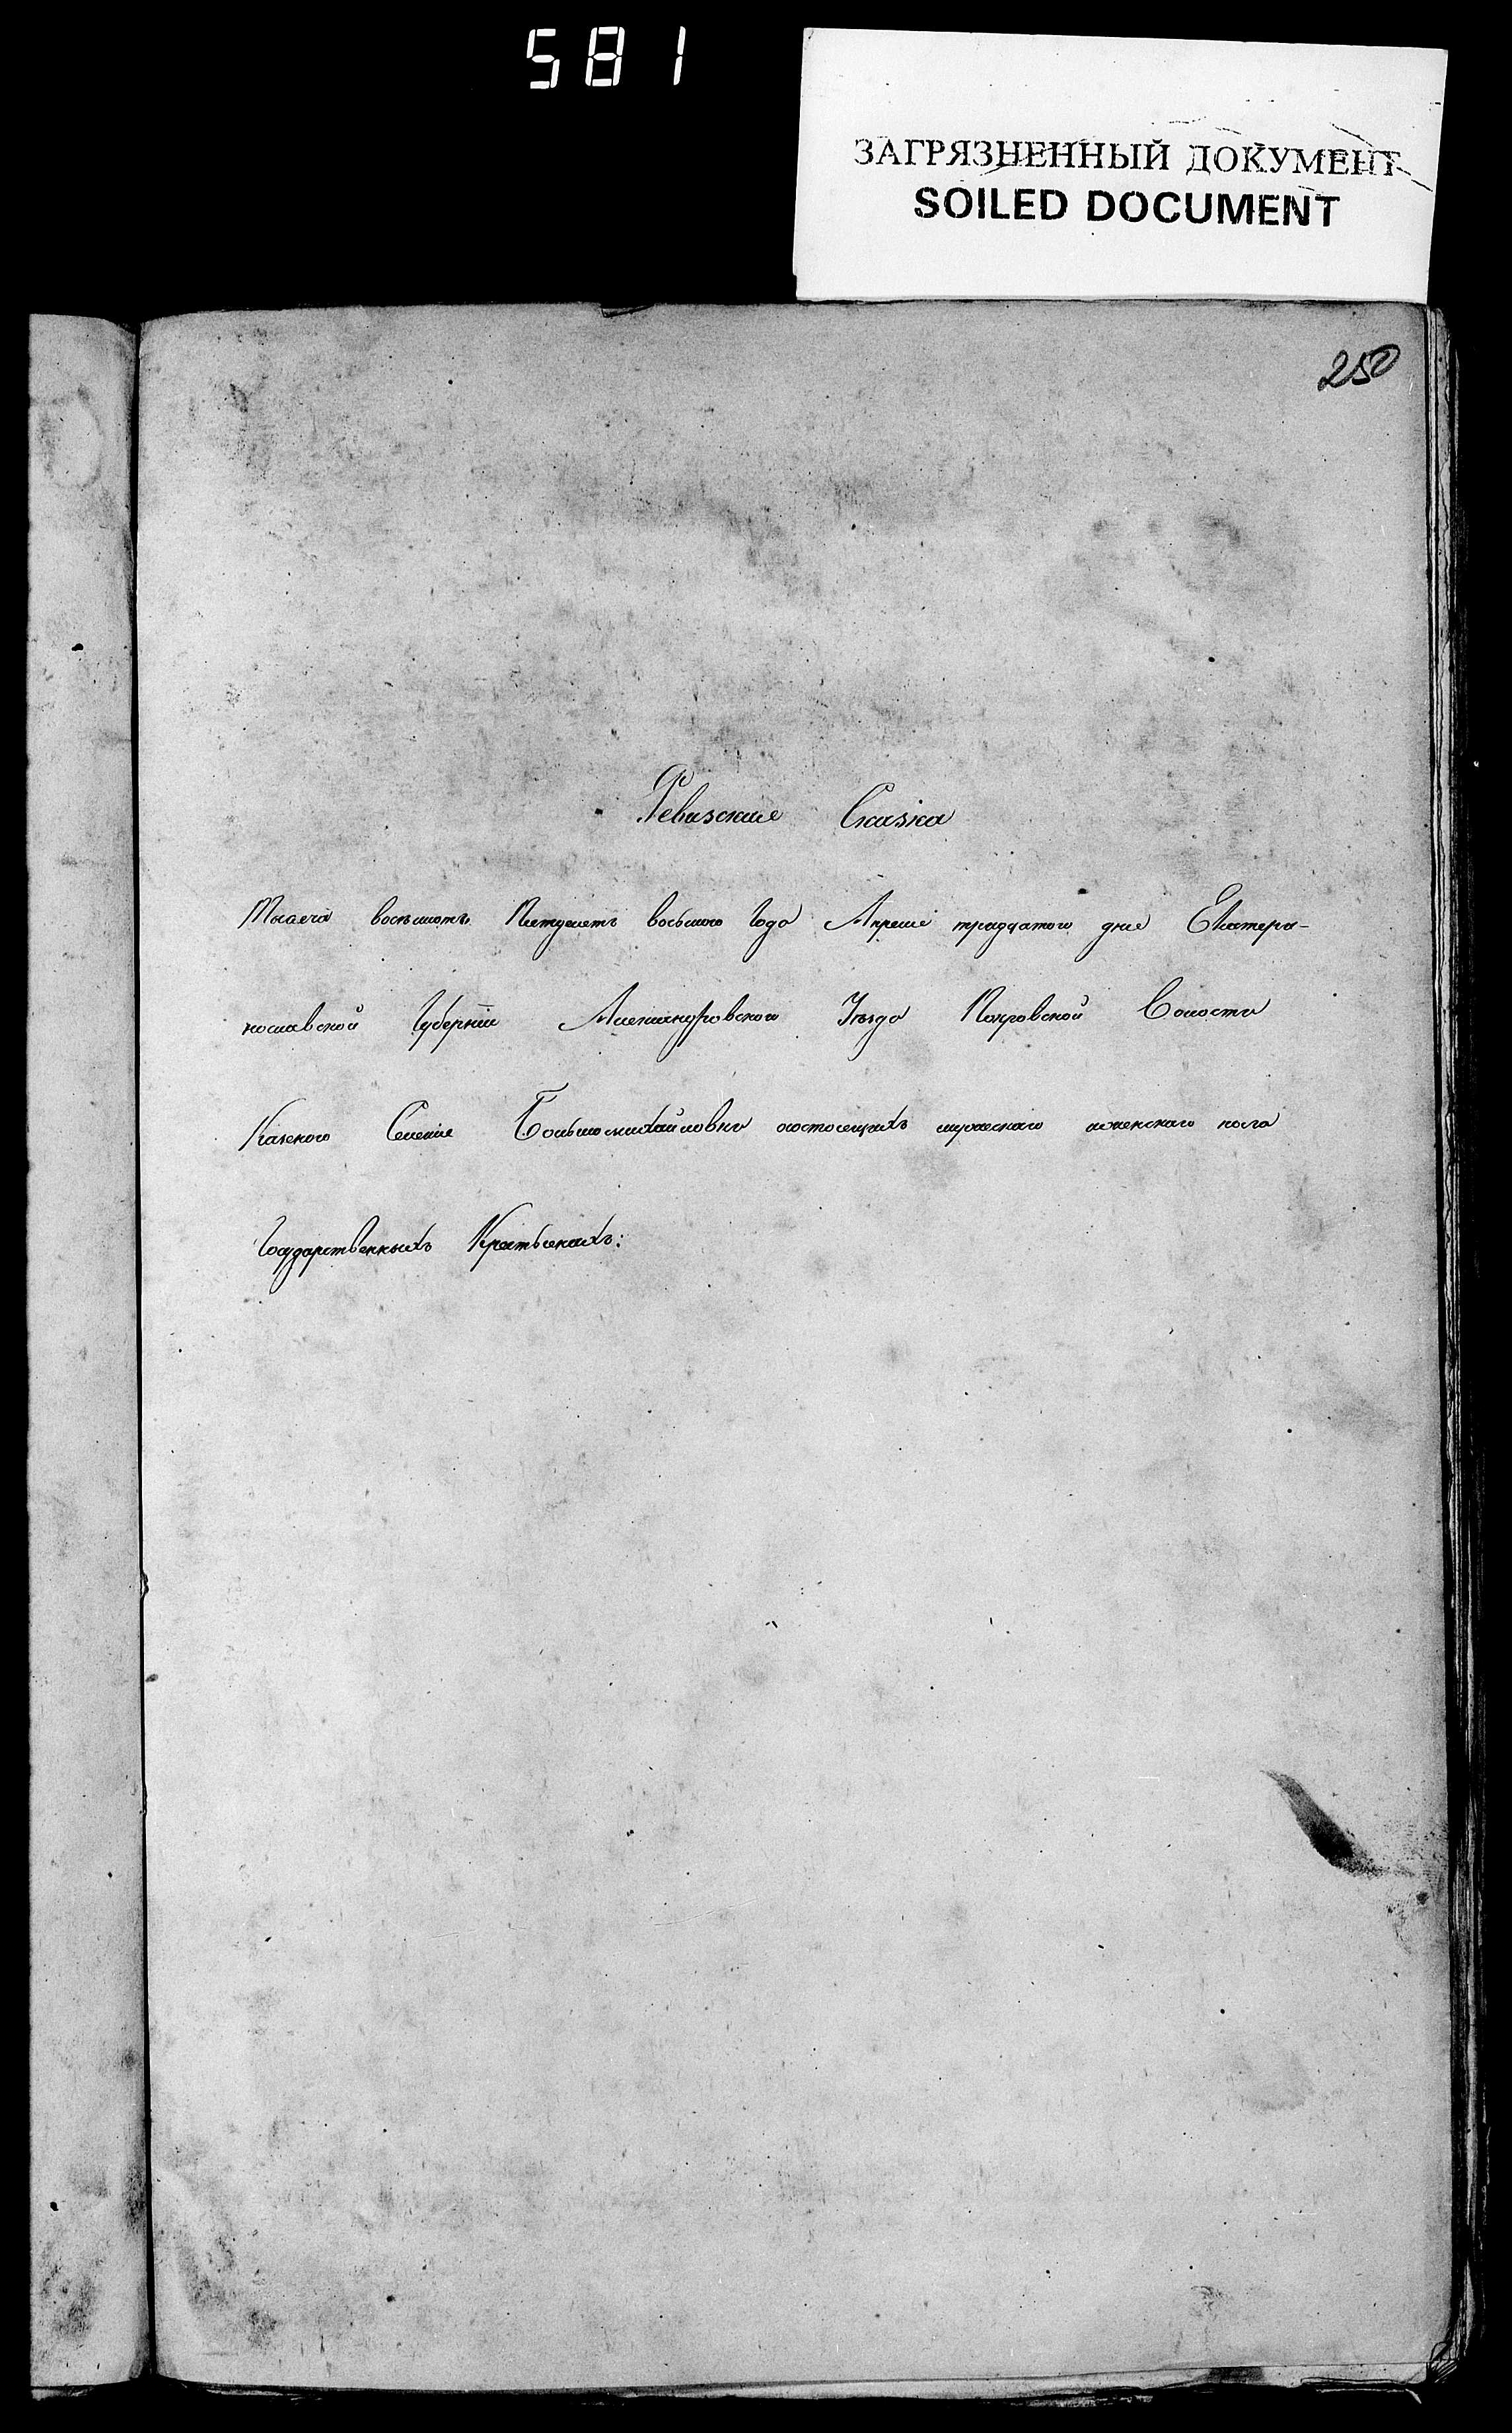 581
ЗАГРЯЗНЕННЫЙ ДОКУМЕНТ
SOILED DOCUMENT
250
Ревизская Сказка
Тысеча восемъсотъ Пятдесятъ восьмого Года Апреля тридцатого дня Екатери-
нославской Губернiи Александровского Уѣзда Покровской Волости
Казеного Селенiя Большомихайловки состоящихъ мужескаго женскаго пола
Государственныхъ Крестьянахъ: